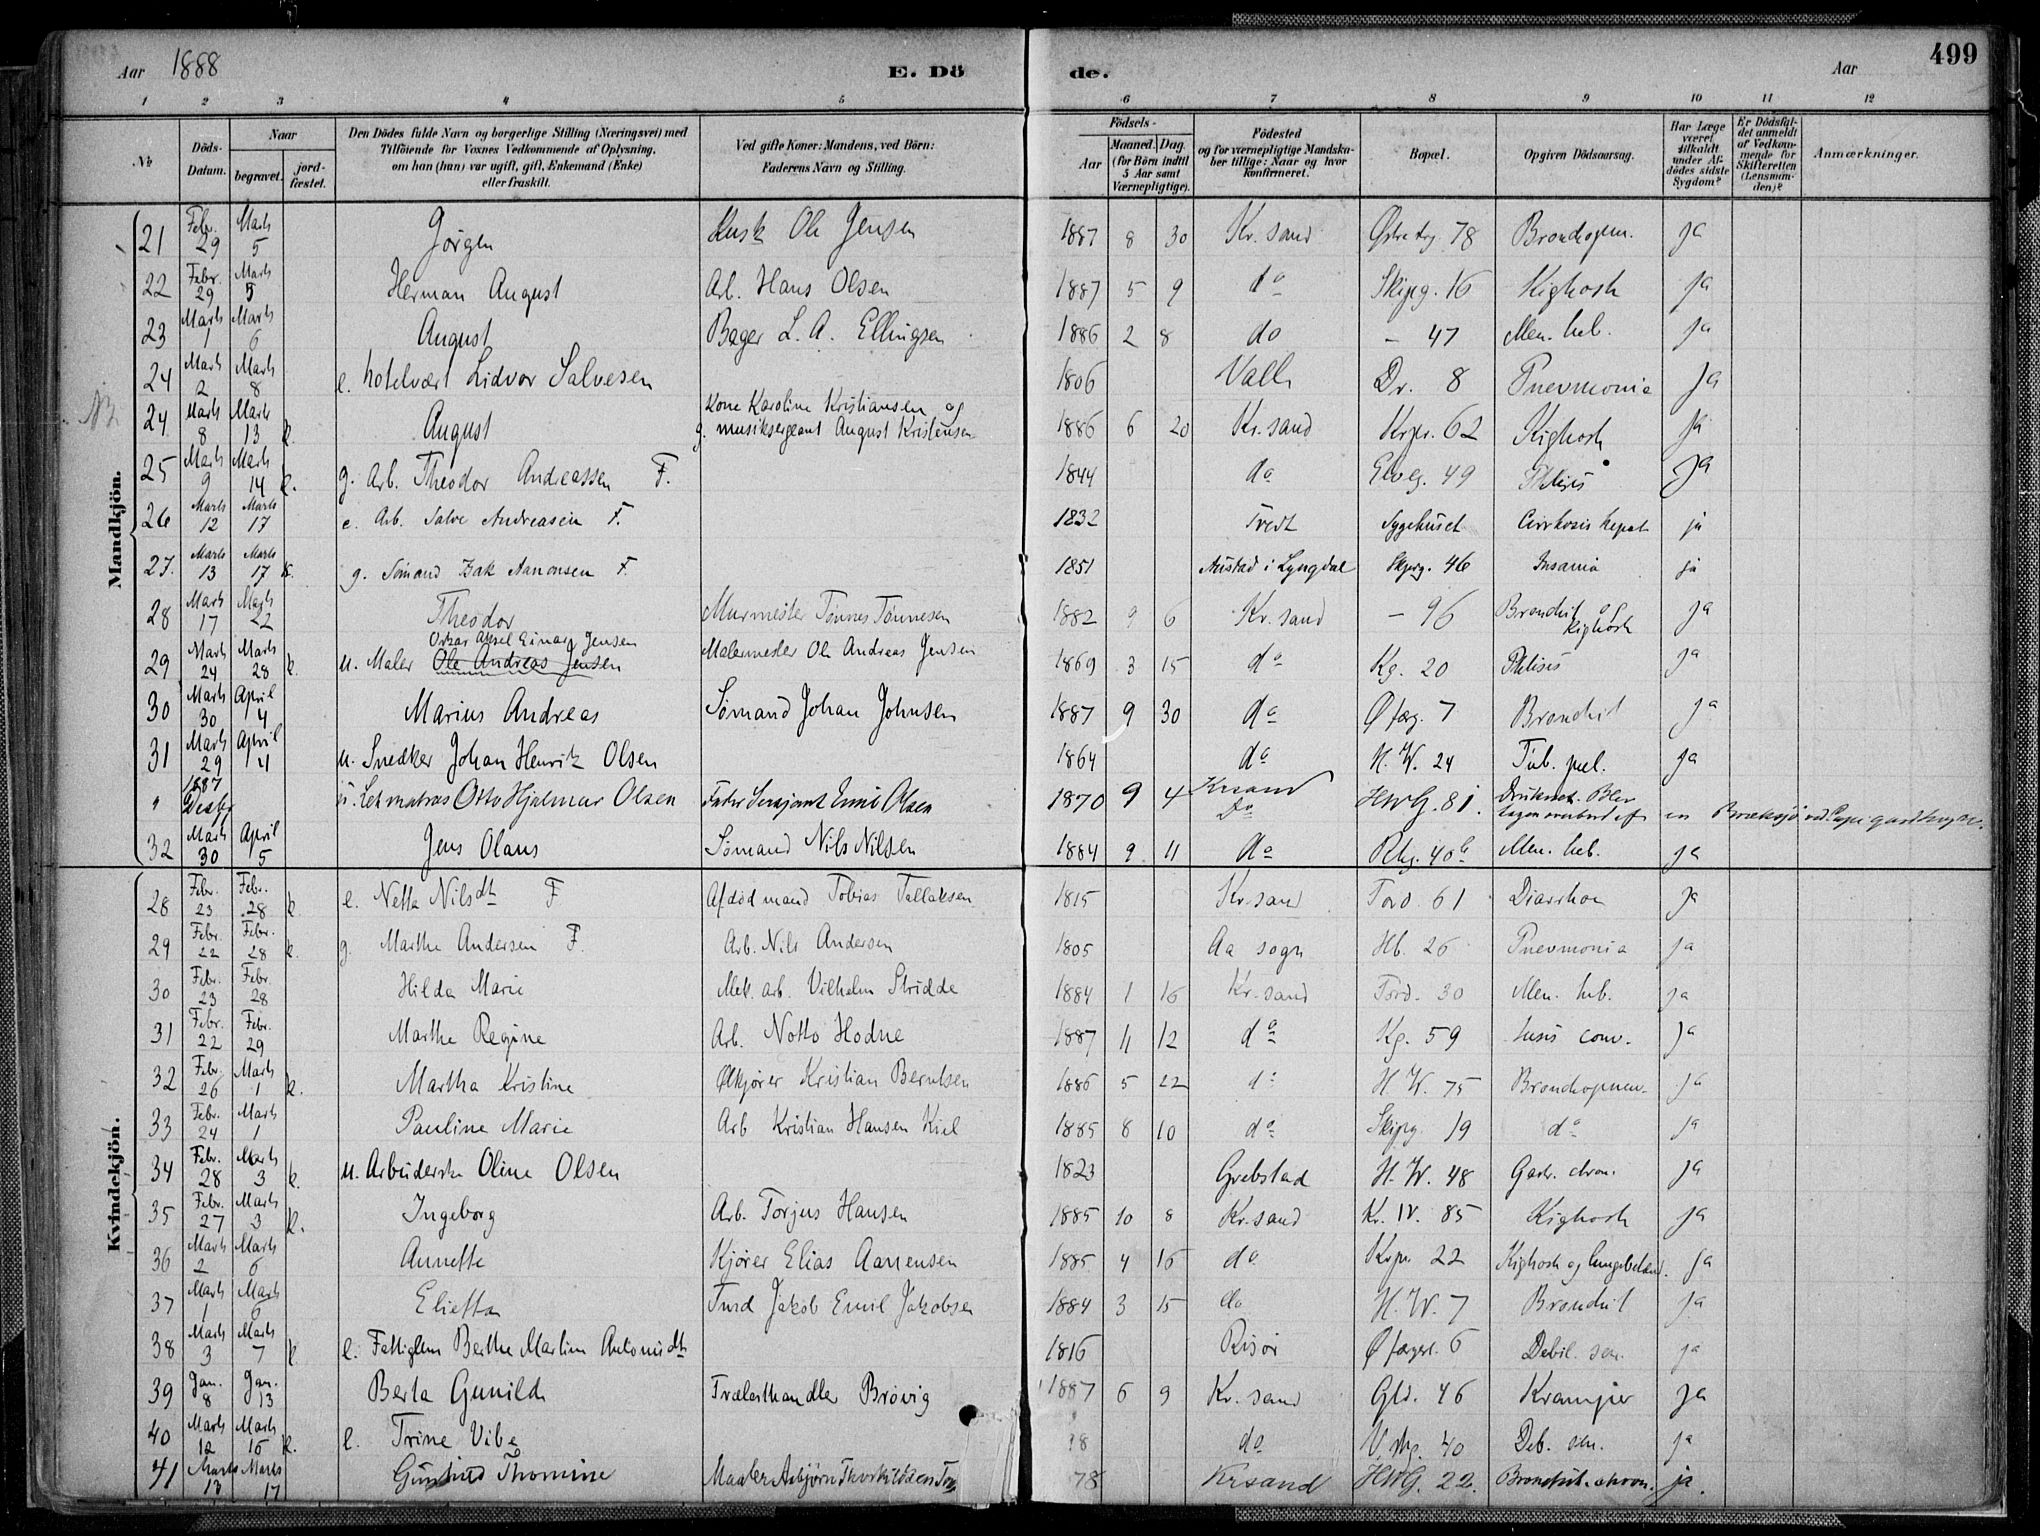 Aar 1888 E. Dö de. Aar 499
1 2 3 4 5 6 7 8 9 10 11 12
No
Döds-Datum.
Naar
begravet.
jord-fæstet.
Den Dödes fulde Navn og borgerlige Stilling (Næringsvei) med
Tilföiende for Voxnes Vedkommende af Oplysning,
om han (hun) var ugift, gift, Enkemand (Enke)
eller fraskilt.
Ved gifte Koner: Mandens, ved Börn:
Faderens Navn og Stilling.
Födsels-
Aar
Maaned. Dag.
(for Börn indtil
5 Aar samt
Værnepligtige).
Födested
og for værnepligtige Mandska-
ber tillige: Naar og hvor
konfirmeret.
Bopæl.
Opgiven Dödsaarsag.
Har Læge
været
tilkaldt
under Af-
dödes sidste
Sygdom?
Er Dödsfal-
det anmeldt
af Vedkom-
mende for
Skifteretten
(Lensman-
den)?
Anmærkninger.
Mandkjön.
21 Febr. 29 Marts 5 Jørgen Kusk Ole Jensen 1887 8 30 Kr.sand 78 Bronchopnm. ja
22 Febr. 29 Marts 5 Herman August Arb. Hans Olsen 1887 5 9 do Skipg. 16 Kighoste ja
23 Marts 1 Marts 6 August Bager L. A. Ellingsen 1886 2 8 do - 47 Men. tub. ja
24 Marts 2 Marts 8 e. hotelvært Lidvor Salvesen 1806 Valle Dr. 8 Pnevmonia ja
24 Marts 8 Marts 13 k. August Kone Karoline Kristiansen og
g. musiksergeant August Kristensen 1886 6 20 Kr.sand Krpr. 62 Kighoste ja
25 Marts 9 Marts 14 k. g. Arb. Theodor Andreassen F. 1844 do Elveg. 49 Phtisis ja
26 Marts 12 Marts 17 e. Arb. Salve Andreasen F. 1832 Tveit Sygehuset Cirrhosis hepat. ja
27. Marts 13 Marts 17 k. g. Sømand Isak Aanonsen F. 1851 Austad i Lyngdal Skipg. 46 Insania ja
28 Marts 17 Marts 22 Theodor Murmester Tønnes Tønnesen 1882 9 6 Kr.sand - 96 Bronchit og
Kighoste ja
Oskar Aksel Einar Jensen
29 Marts 24 Marts 28 k. u. Maler Ole Andreas Jensen Malermester Ole Andreas Jensen 1869 3 15 do Kg. 20 Phtisis ja
30 Marts 30 April 4 Marius Andreas Sømand Johan Johnsen 1887 9 30 do Ø færg. 7 Bronchit ja
31 Marts 29 April 4 u. Snedker Johan Henrik Olsen 1864 do H. W. 24 Tub. pul. ja
" 1887 u. Letmatros Otto Hjalmar Olsen Fader Sersjant Olsen 1870 9 4 Krsand
Do HWG. 81. Druknet. Blev
tagen overbord af en Braksjø
32 Marts 30 April 5 Jens Olaus Sømand Nils Nilsen 1884 9 11 do 40b Men. tub. ja
Kvindekjön.
28 Febr. 23 Febr. 28 k. e. Netta Nilsdt F Afdød mand Tobias Tallaksen 1815 Kr.sand Tord. 61 Diarrhoe ja
29 Febr. 22 Febr. 28 k. g. Marthe Andersen F. Arb. Nils Andersen 1805 Aa sogn Hb. 26 Pnevmonia ja
30 Febr. 23 Febr. 28 Hilda Marie Mek. arb. Vilhelm Stridde 1884 1 16 Kr.sand Tord. 30 Men. tub. ja
31 Febr. 22 Febr. 29 Marthe Regine Arb. Notto Hodne 1887 11 12 do Kg. 59 tusis conv. ja
32 Febr. 26 Marts 1 k. Martha Kristine Ølkjører Kristian Berntsen 1886 5 22 do H. W. 75 Bronchopnm. ja
33 Febr. 24 Marts 1 Pauline Marie Arb Kristian Hansen Kiel 1885 8 10 do Skipg. 19 do ja
34 Febr. 28 Marts 3 k. u. Arbeiderske Oline Olsen 1823 Grebstad H. W. 48 Gastr. chron. ja
35 Febr. 27 Marts 3 k. Ingeborg Arb. Torjus Hansen 1885 10 8 Kr.sand Kr. IV. 85 Kighoste ja
36 Marts 2 Marts 6 Annette Kjører Elias Aanensen 1885 4 16 do Krpr. 22 Kighoste og lungebetænd. ja
37 Marts 1 Marts 6 Elietta Jakob Emil Jakobsen 1884 3 15 do H. W. 7 Bronchit ja
38 Marts 3 Marts 7 k. e. Fattiglem Berthe Martine Antonisdt 1816 Risør Ø færget. 6 Debil. sen. ja
39 Jan. 8 Jan. 13 Berta Gunilde Trælasthandler Brøvig 1887 6 9 Kr.sand Gld. 46 Kramper ja
40 Marts 12 Marts 16 k. e. Trine Vibe 18 do V. stg. 40 Deb. sen. ja
41 Marts 13 Marts 17 Thomine Maaler Asbjørn Thorkildsen 78 Krsand HWG. 22. Bronchit. chron. ja.